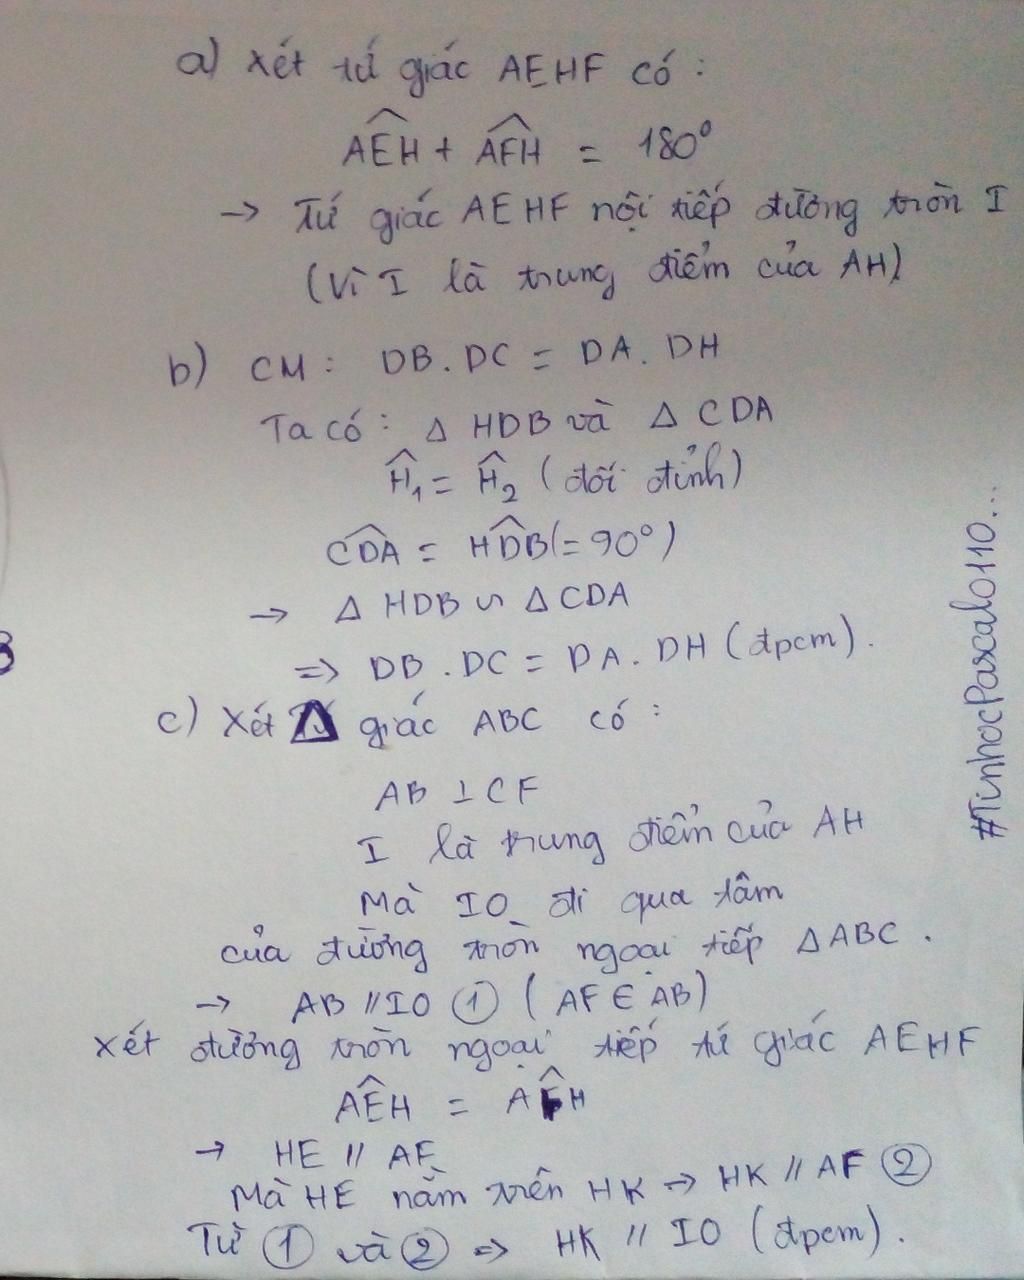 a) Xét tứ giác AEHF có :
AÊH + AF̂H = 180°
→ Tứ giác AEHF nội tiếp đường tròn I
(Vì I là trung điểm của AH)
b) CM : DB . DC = DA . DH
Ta có : Δ HDB và Δ CDA
Ĥ₁ = Ĥ₂ (đối đỉnh)
CD̂A = HD̂B (= 90°)
→ Δ HDB ∽ Δ CDA
=> DB . DC = DA . DH (đpcm) .
c) Xét Δ giác ABC có :
AB ⊥ CF
I là trung điểm của AH
Mà IO đi qua tâm
của đường tròn ngoại tiếp ΔABC .
→ AB // IO ① ( AF ∈ AB)
Xét đường tròn ngoại tiếp tứ giác AEHF
AÊH = AF̂H
→ HE // AF
Mà HE nằm trên HK → HK // AF ②
Từ ① và ② => HK // IO (đpcm) .
#TinhocPascal0110...